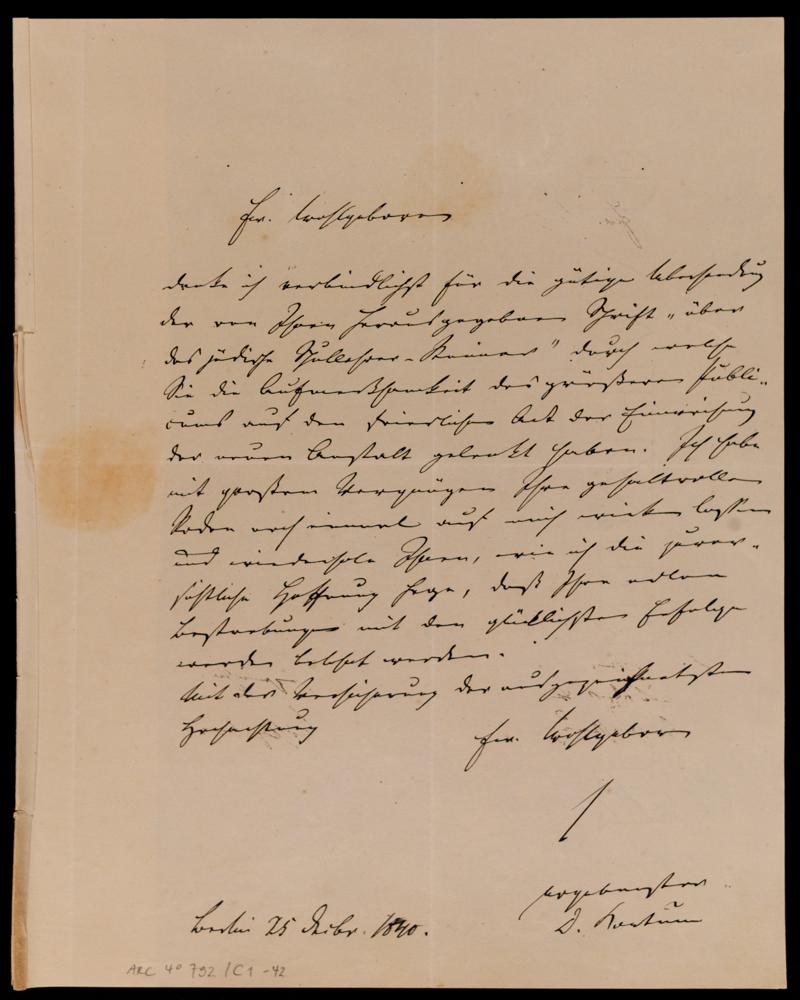 Ew. Wohlgeboren
danke ich verbindlichst für die gütige Übersendung
der von Ihnen herausgegebenen Schrift „über
das jüdische Schullehrer-Seminar" durch welche
Sie die Aufmerksamkeit des größeren Publi-
cums auf den feierlichen Act der Einweihung
der neuen Anstalt gelenkt haben. Ich habe
mit großem Vergnügen Ihre gehaltvollen
Reden noch einmal auf mich wirken lassen
und wiederhole Ihnen, wie ich die zuver-
sichtliche Hoffnung hege, daß Ihre edlen
Bestrebungen mit dem glücklichsten Erfolge
werden belohnt werden.
Mit der Versicherung der ausgezeichnetsten
Hochachtung
Ew. Wohlgeboren
ergebenster
D. Kortüm
Berlin 25 Decbr. 1840.
ARC 4° 792/C1-42